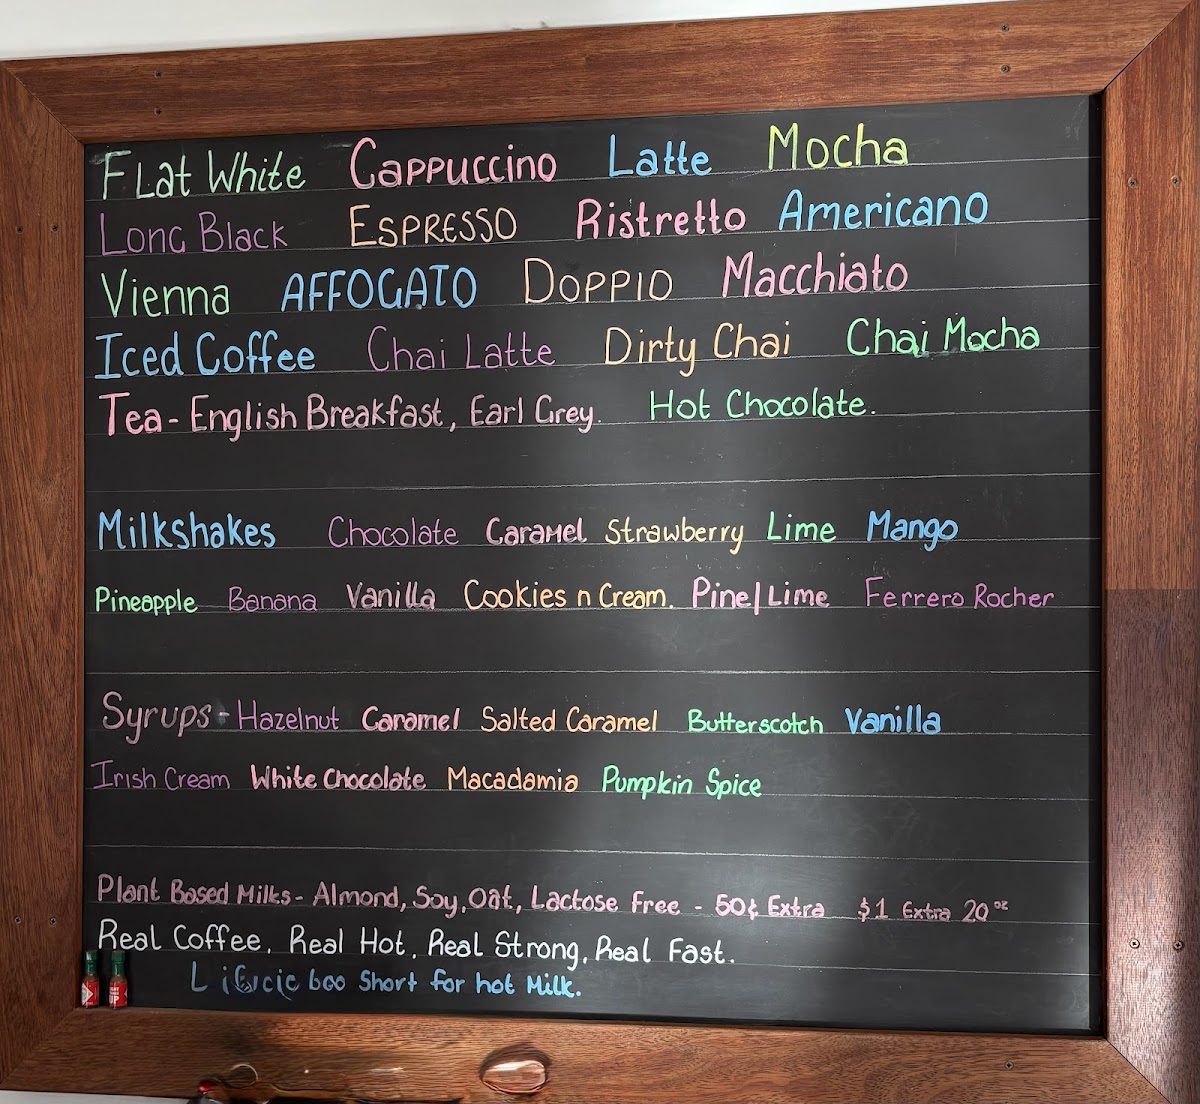 FLat White Cappuccino Latte Mocha
Long Black Espresso Ristretto Americano
Vienna AFFOGATO Doppio Macchiato
Iced Coffee Chai Latte Dirty Chai Chai Mocha
Tea - English Breakfast, Earl Grey. Hot Chocolate.
Milkshakes Chocolate Caramel Strawberry Lime Mango
Pineapple Banana Vanilla Cookies n Cream. Pine/Lime Ferrero Rocher
Syrups - Hazelnut Caramel Salted Caramel Butterscotch Vanilla
Irish Cream White Chocolate Macadamia Pumpkin Spice
Plant Based Milks - Almond, Soy, Oat, Lactose Free - 50¢ Extra $1 Extra 20oz
Real Coffee, Real Hot, Real Strong, Real Fast.
Short for hot Milk.